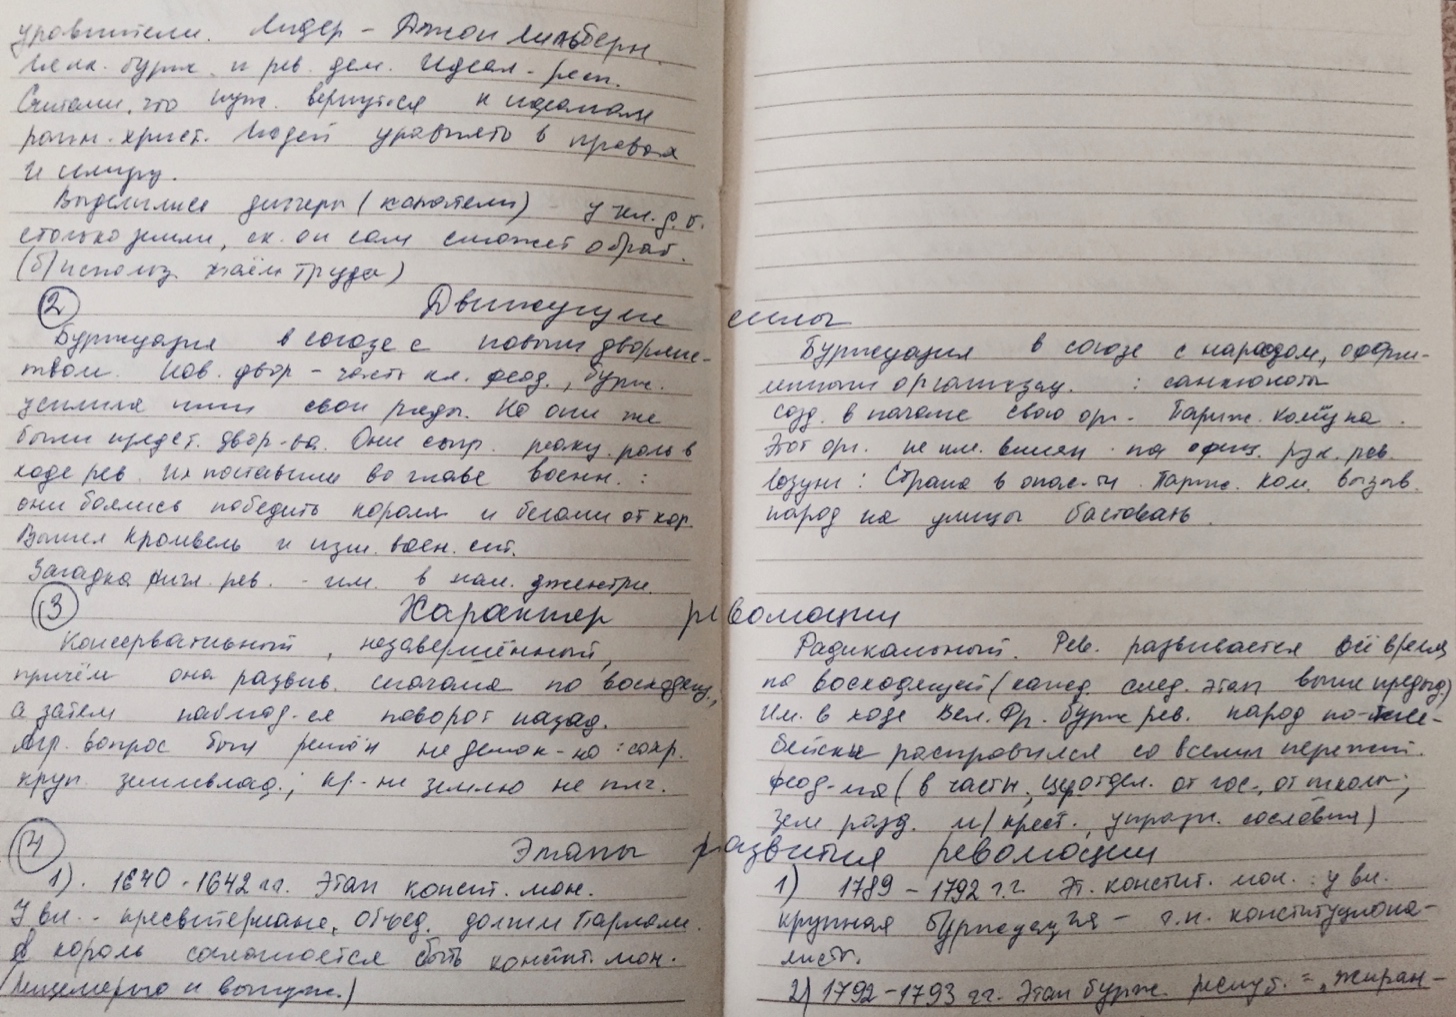 уравнители. Лидер – Джон Лильберн.
Мелк. бурж. и рев. дем. Идеал – респ.
Считали, что нуж. вернуться к идеалам
ранн. христ. Людей уравнять в правах
и имущ.
Выделились диггеры (копатели) – у кл. д. б.
столько земли, ск. он сам сможет обраб.
(б/использ. наём. труда)
② Движущие силы
Буржуазия в союзе с новым дворянс-
твом. Нов. двор – часть кл. феод., бурж.
усилила ими свои ряды. Но они же
были предст. двор-ва. Они сыгр. реакц. роль в
ходе рев. Их поставили во главе военн. :
они боялись победить короля и бегали от кор.
Вышел Кромвель и изм. воен. сит.
Загадка Англ. рев. – им. в нал. джентри.
Буржуазия в союзе с народом, оформ-
ленным организац. : санкюлоты
созд. в начале свою орг. Париж. коммуна.
Этот орг. не им. влиян. на офиц. рук. рев.
Лозунг: Страна в опас-ти. Париж. ком. вызыв.
народ на улицы бастовать.
③ Характер революции
Консервативный, незавершённый,
причём она развив. сначала по восходящ.,
а затем наблюд-ся поворот назад.
Агр. вопрос был решён не демок-но : сохр.
круп. землевлад.; кр-не землю не плч.
Радикальный. Рев. развивается всё время
по восходящей (кажд. след. этап выше предыд)
Им. в ходе Вел. Фр. бурж рев. народ по-плее-
бейски расправился со всеми пережит.
феод-ма (в частн., црк отдел. от гос-, от школы;
зем разд. м/ крест., упразн. сословия)
④ Этапы развития революции
1). 1640 – 1642 гг. Этап консит. мон.
У вл. – пресвитериане, Объед. долгим Парлам.
А король соглашается быть констит. мон.
(лицемерно и вынуж.)
1) 1789 – 1792 г.г. Эт. констит. мон. : у вл.
крупная буржуазия – т.н. конституциона-
листы.
2) 1792 – 1793 гг. Этап бурж. респуб. = „Жиран-